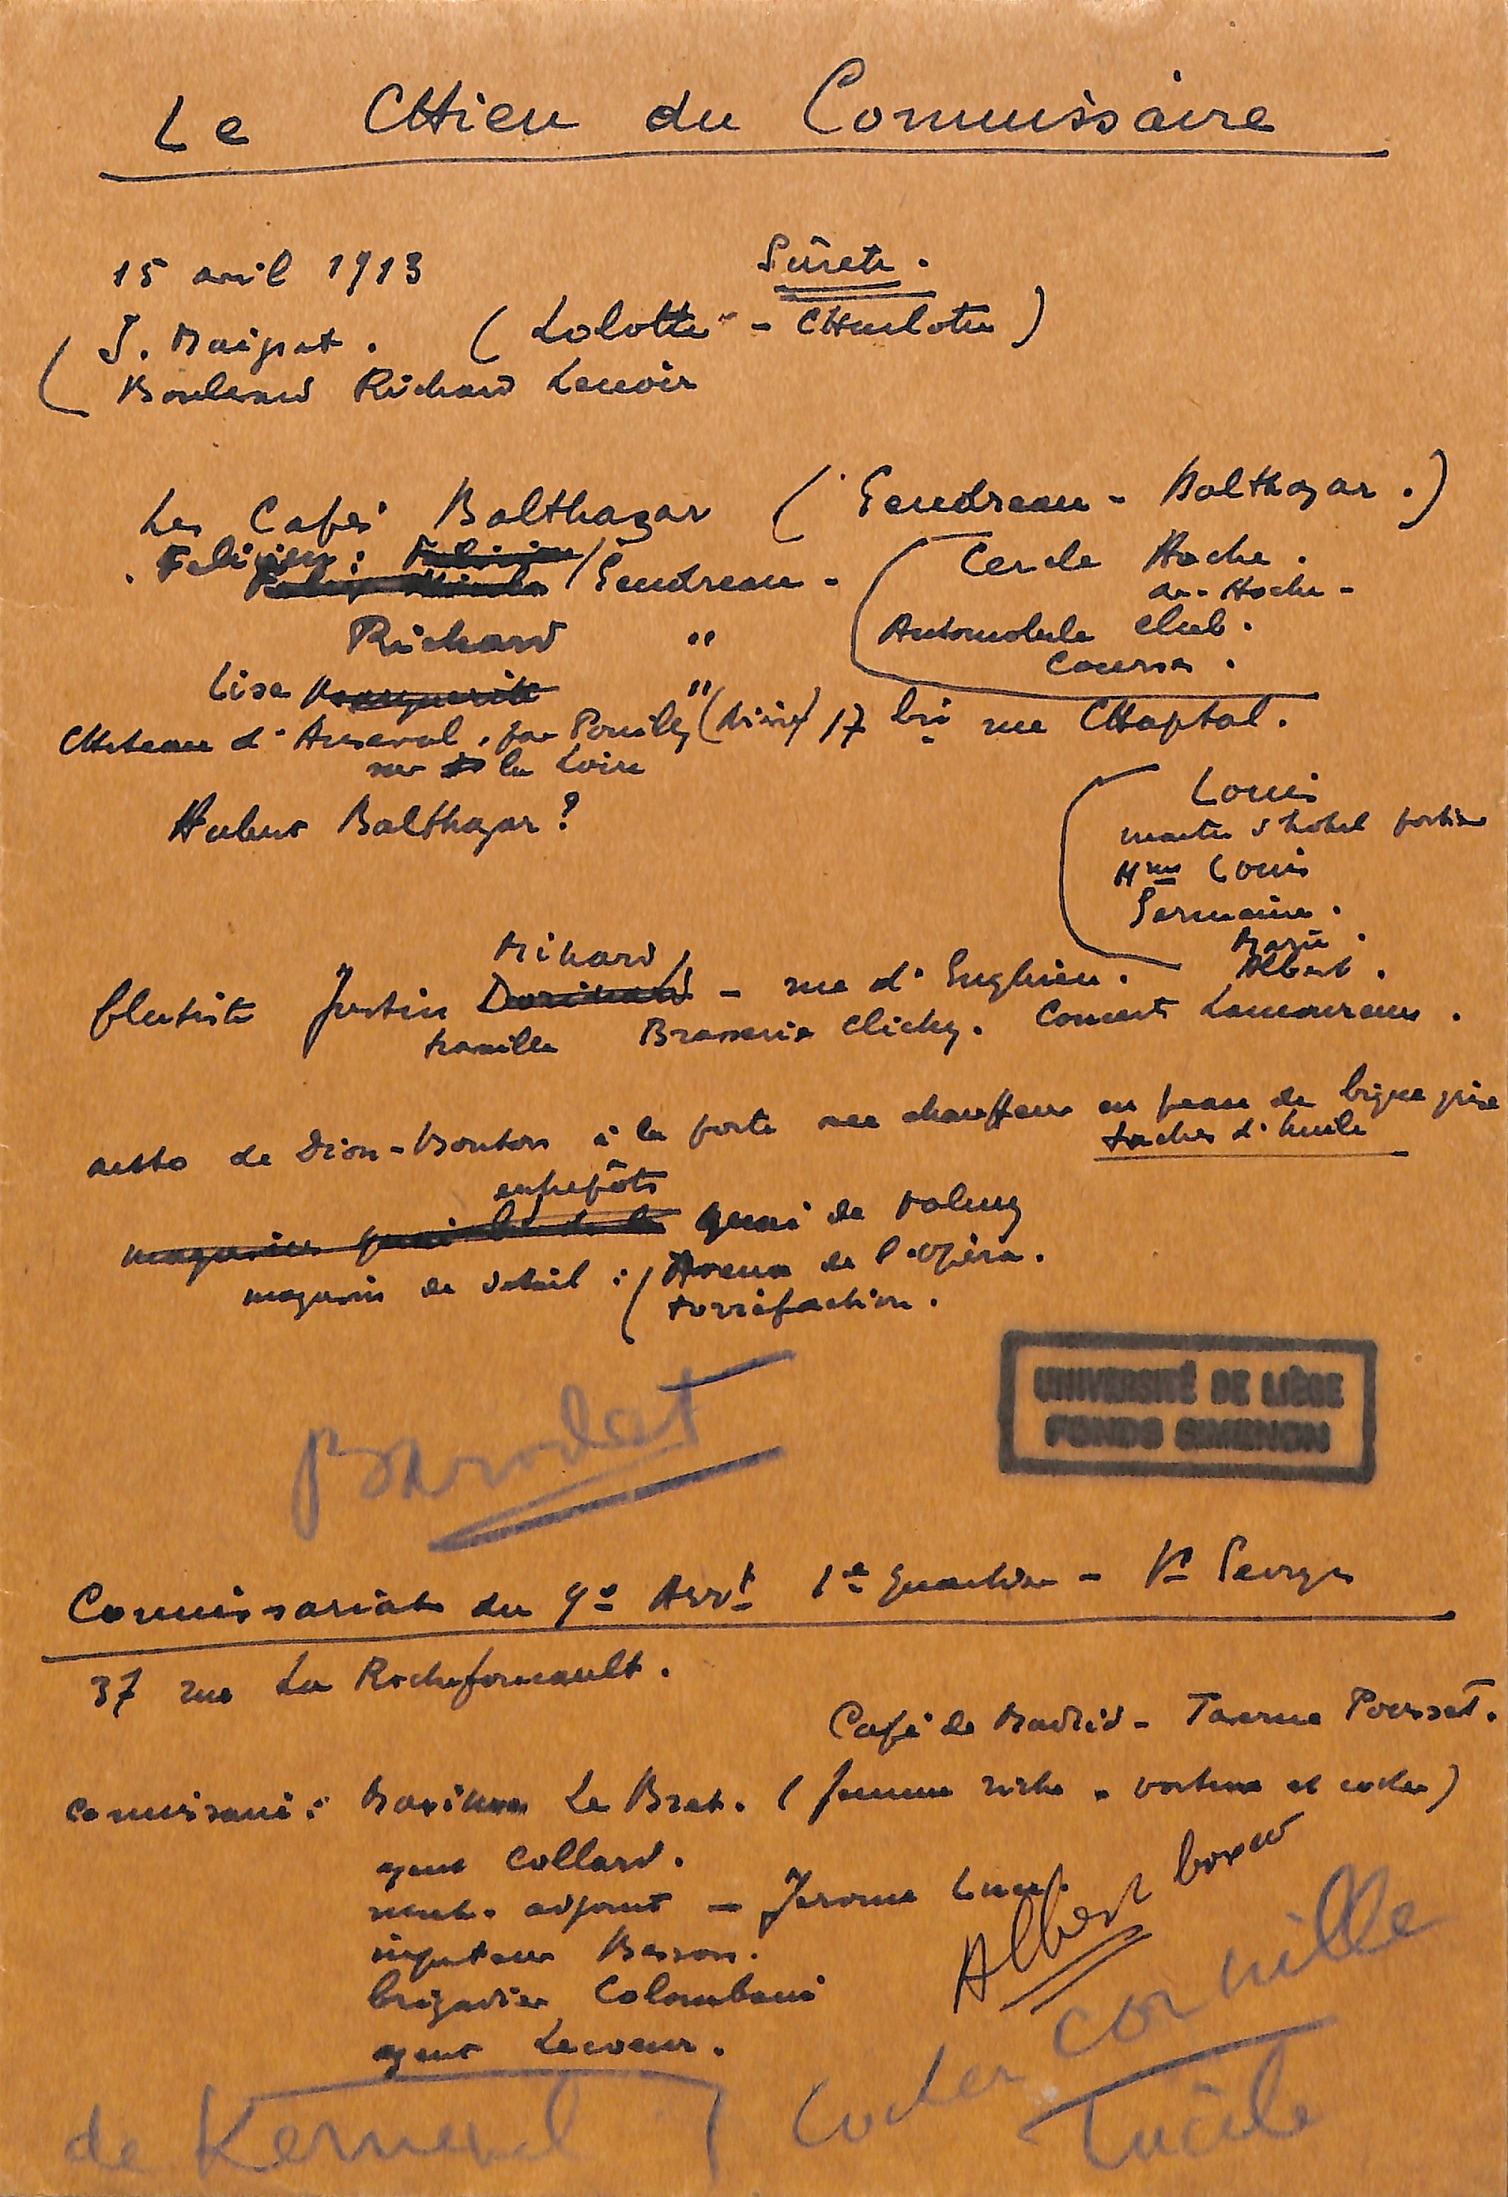 Le CHien du Commissaire
15 avril 1913
Sûreté.
J. Maigret. (Lolotte - CHarlotte)
Boulevard Richard Lenoir
Les Cafés Balthazar (Gendreau - Balthazar.)
Félicien: Gendreau -
Cercle Hoche.
av. Hoche -
Automobile Club.
Courses.
Richard "
Lise "
CHateau d'Anseval, par Pouilly (Nièvre) 17 bis rue CHaptal.
sur la Loire
Hubert Balthazar?
Louis
maitre d'hotel
Mme Louis
Germaine.
Marie.
Albert.
Minard
flutiste Justin - rue d'Enghien.
travaille Brasserie Clichy. Concerts Lamoureux.
auto de Dion-Bouton à la porte avec chauffeur en peau de bique grise
taches d'huile
entrepôts
quai de Valmy
magasin de détail: (Avenue de l'Opéra.
torréfaction.
Barodet
UNIVERSITÉ DE LIÈGE
FONDS SIMENON
Commissariat du 9e Arrt 1e quartier - St Georges
37 rue La Rochefoucault.
Café de Madrid - Taverne Pousset.
commissaire: Maxime Le Bret. (femme riche - voiture et cocher)
agent Collard.
- Jerome
inspecteur Besson.
brigadier Colombani
agent Lecoeur.
Albert boxeur
cocher cornille
de Kernevel
Lucile